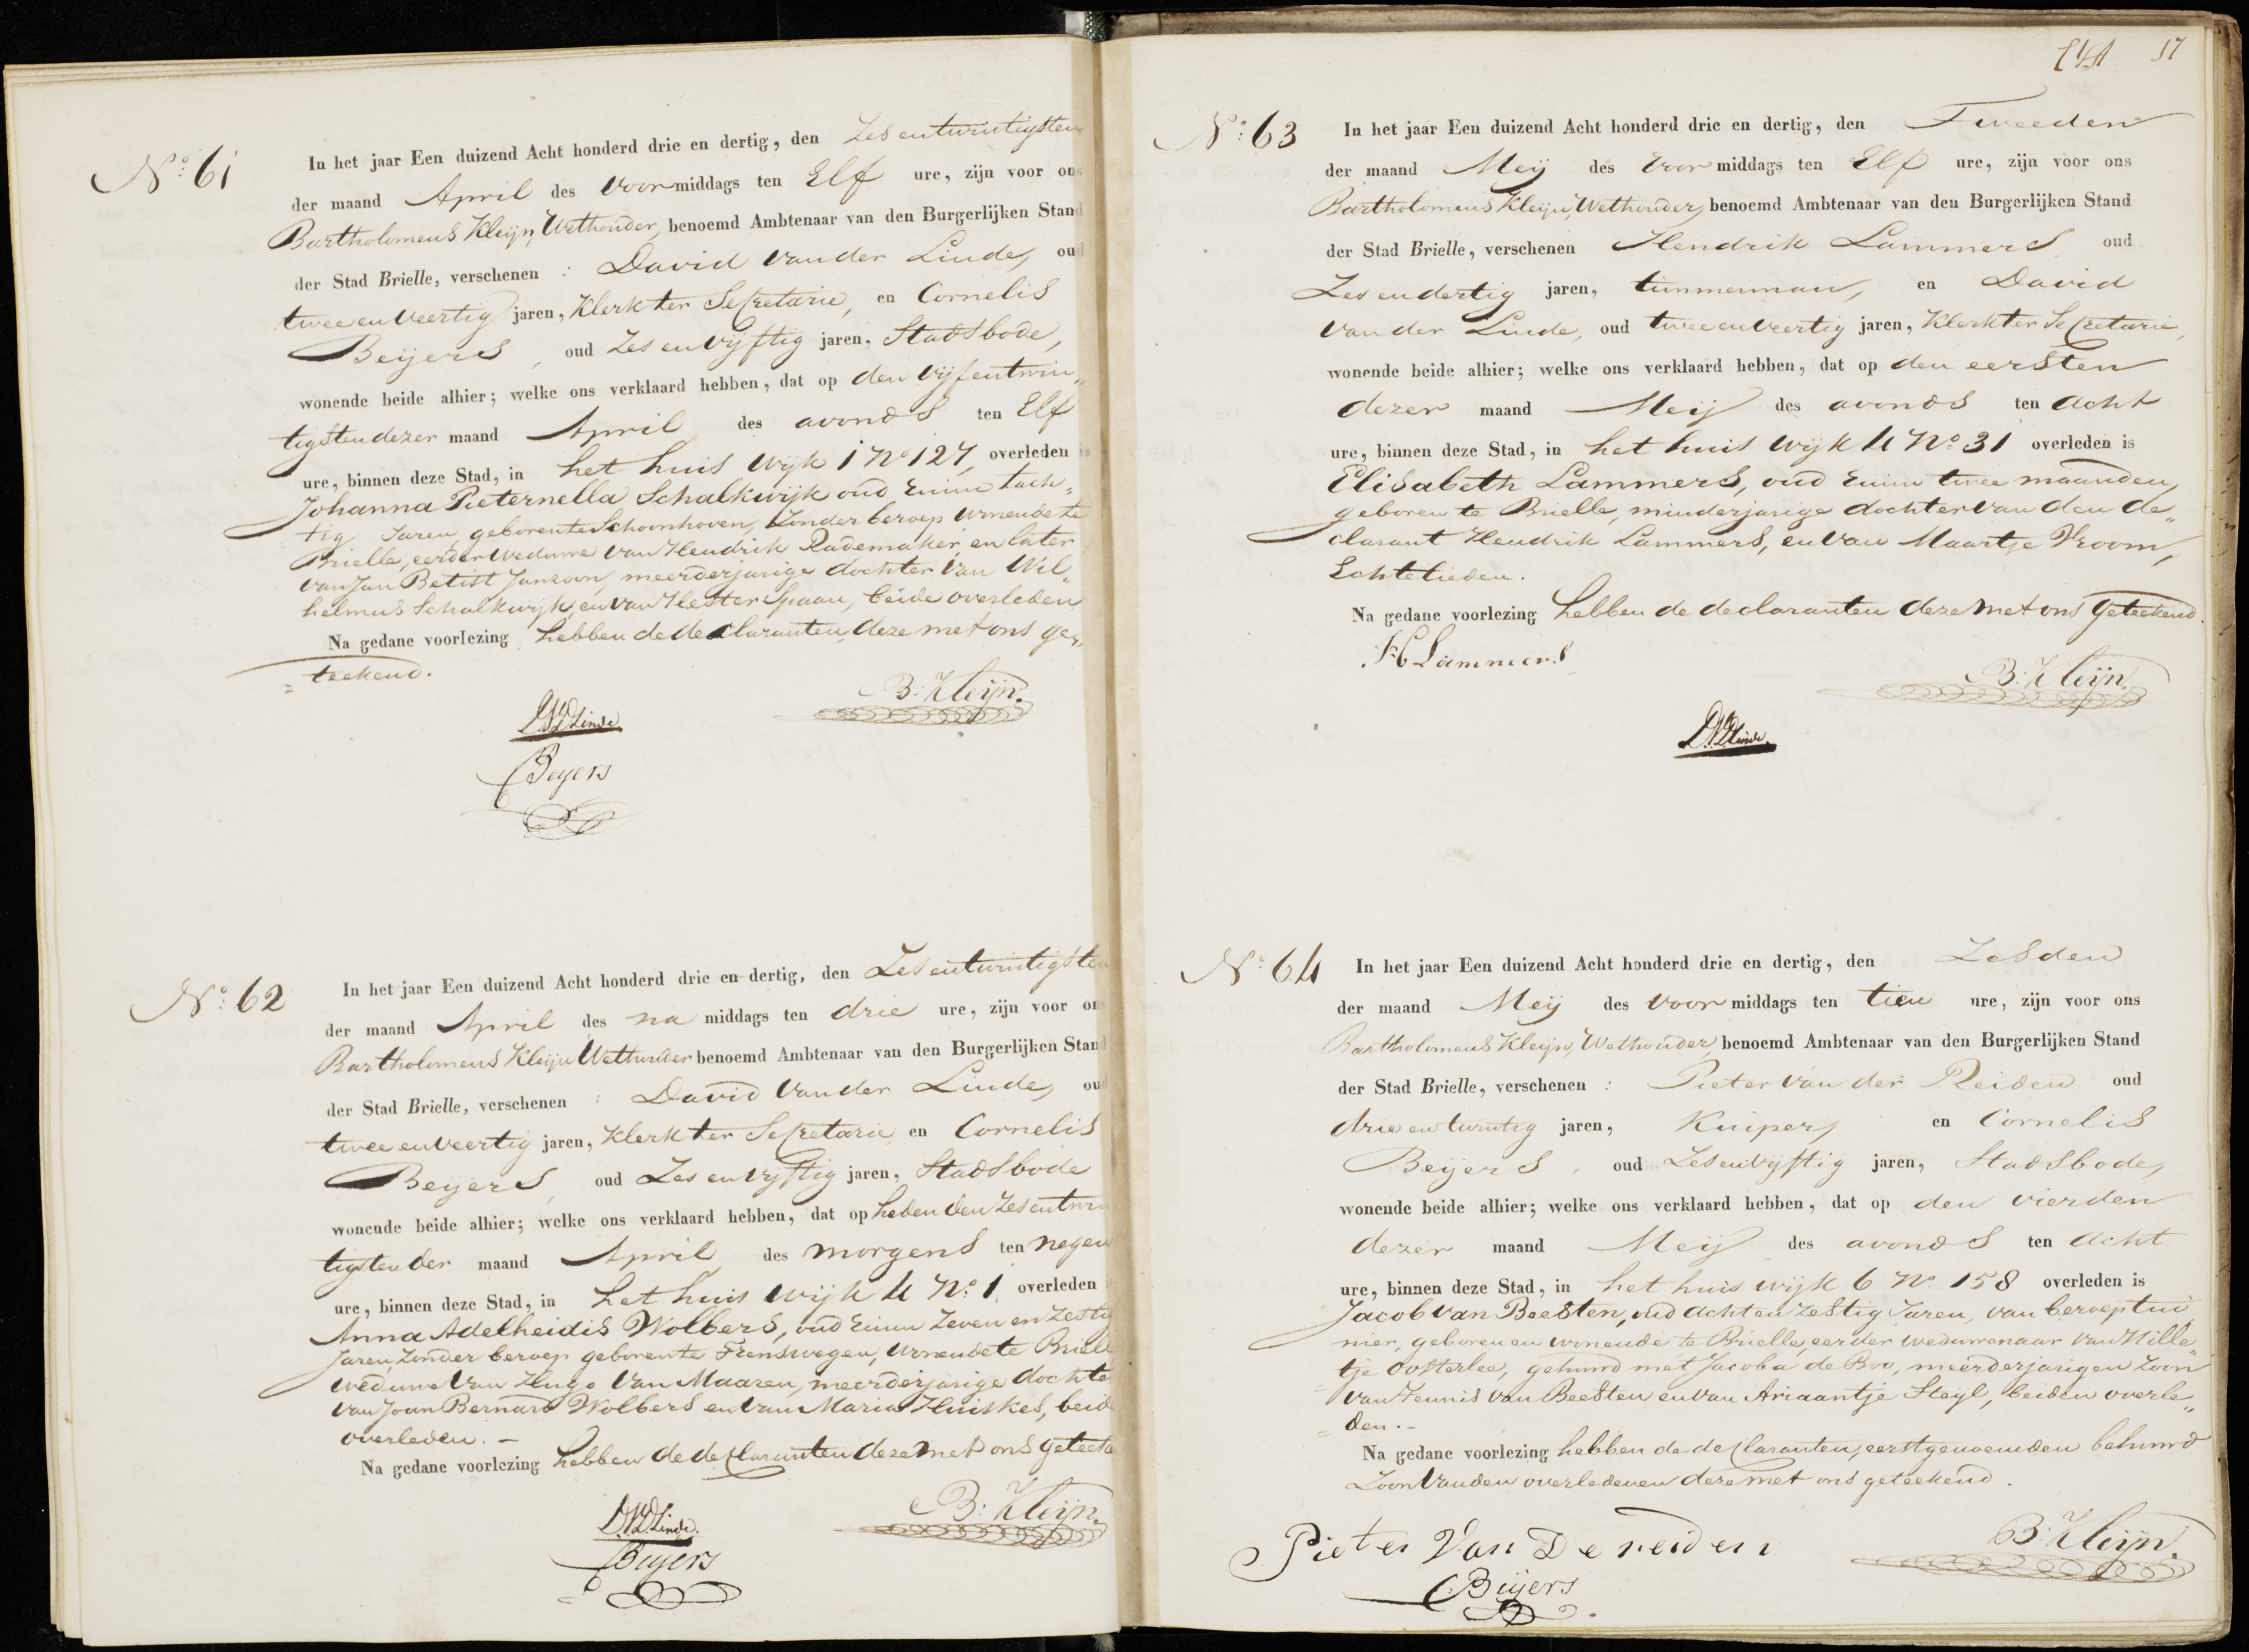 No: 61
In het jaar Een duizend Acht honderd drie en dertig, den Zesentwintigsten
der maand April des voormiddags ten Elf ure, zijn voor ons
Bartholomeus Kleijn, Wethouder, benoemd Ambtenaar van den Burgerlijken Stand
der Stad Brielle, verschenen : David van der Linde, oud
twee en veertig jaren, Klerk ter Secretarie, en Cornelis
Beijers, oud Zes en vijftig jaren, Stadsbode,
wonende beide alhier; welke ons verklaard hebben, dat op den vijfentwin„
tigsten dezer maand April des avonds ten Elf
ure, binnen deze Stad, in het huis wijk 1 No 127, overleden is
Johanna Pieternella Schalkwijk oud ruim tach„
tig Jaren, geboren te Schoonhoven, Zonder beroep wonende te
Brielle, eerder weduwe van Hendrik Rademaker, en later
van Jan Betist Janzoon, meerderjarige dochter van Wil„
helmus Schalkwijk, en van Hester Spaan, beide overleden
Na gedane voorlezing hebben de declaranten deze met ons ge„
= teekend.
B: Kleijn.
DVDLinde
CBeyers
No: 62
In het jaar Een duizend Acht honderd drie en dertig, den Zesentwintigsten
der maand April des na middags ten drie ure, zijn voor ons
Bartholomeus Kleijn Wethouder benoemd Ambtenaar van den Burgerlijken Stand
der Stad Brielle, verschenen : David van der Linde, oud
twee en veertig jaren, Klerk ter Secretarie, en Cornelis
Beijers, oud Zes en vijftig jaren, Stadsbode
wonende beide alhier; welke ons verklaard hebben, dat op heden den Zesentwin
tigsten der maand April des morgens ten negen
ure, binnen deze Stad, in het huis wijk 4 No: 1, overleden is
Anna Adelheidis Wolbers, oud ruim Zeven en Zestig
Jaren, Zonder beroep geboren te Frenswegen, wonende te Brielle
weduwe van Hugo van Maaren, meerderjarige dochter
van Joan Bernard Wolbers en van Maria Huiskes, beide
overleden. –
Na gedane voorlezing hebben de declaranten deze met ons geteek
B: Kleijn.
D.VD.Linde.
CBeyers
57
No: 63
In het jaar Een duizend Acht honderd drie en dertig, den Tweeden
der maand Meij des voor middags ten Elf ure, zijn voor ons
Bartholomeus Kleijn, Wethouder, benoemd Ambtenaar van den Burgerlijken Stand
der Stad Brielle, verschenen Hendrik Lammers, oud
Zes en dertig jaren, timmerman, en David
van der Linde, oud twee en veertig jaren, Klerk ter Secretarie,
wonende beide alhier; welke ons verklaard hebben, dat op den eersten
dezer maand Meij des avonds ten acht
ure, binnen deze Stad, in het huis wijk 4 No: 31 overleden is
Elisabeth Lammers, oud ruim twee maanden,
geboren te Brielle, minderjarige dochter van den de„
clarant Hendrik Lammers, en van Maartje Vroom,
Echtelieden.
Na gedane voorlezing hebben de declaranten deze met ons Geteekend.
H Lammers
B: Kleijn.
DVDLinde.
No: 64
In het jaar Een duizend Acht honderd drie en dertig, den Zesden
der maand Meij des voor middags ten tien ure, zijn voor ons
Bartholomeus Kleijn, Wethouder, benoemd Ambtenaar van den Burgerlijken Stand
der Stad Brielle, verschenen : Pieter van der Reiden oud
drie en twintig jaren, Kuiper, en Cornelis
Beijers, oud Zes en vijftig jaren, Stadsbode,
wonende beide alhier; welke ons verklaard hebben, dat op den vierden
dezer maand Meij des avonds ten acht
ure, binnen deze Stad, in het huis wijk 6 No. 158 overleden is
Jacob van Beesten, oud acht en zestig Jaren, van beroep tui
nier, geboren en wonende te Brielle, eerder weduwenaar van Wille„
tje Oosterlee, gehuwd met Jacoba de Boo, meerderjarigen Zoon
= van Teunis van Beesten en van Ariaantje Steyl, beiden overle„
= den. –
Na gedane voorlezing hebben de declaranten, eerstgenoemden behuwd
Zoon van den overledenen deze met ons geteekend.
B: Kleijn.
Pieter Van Dereiden
CBeijers